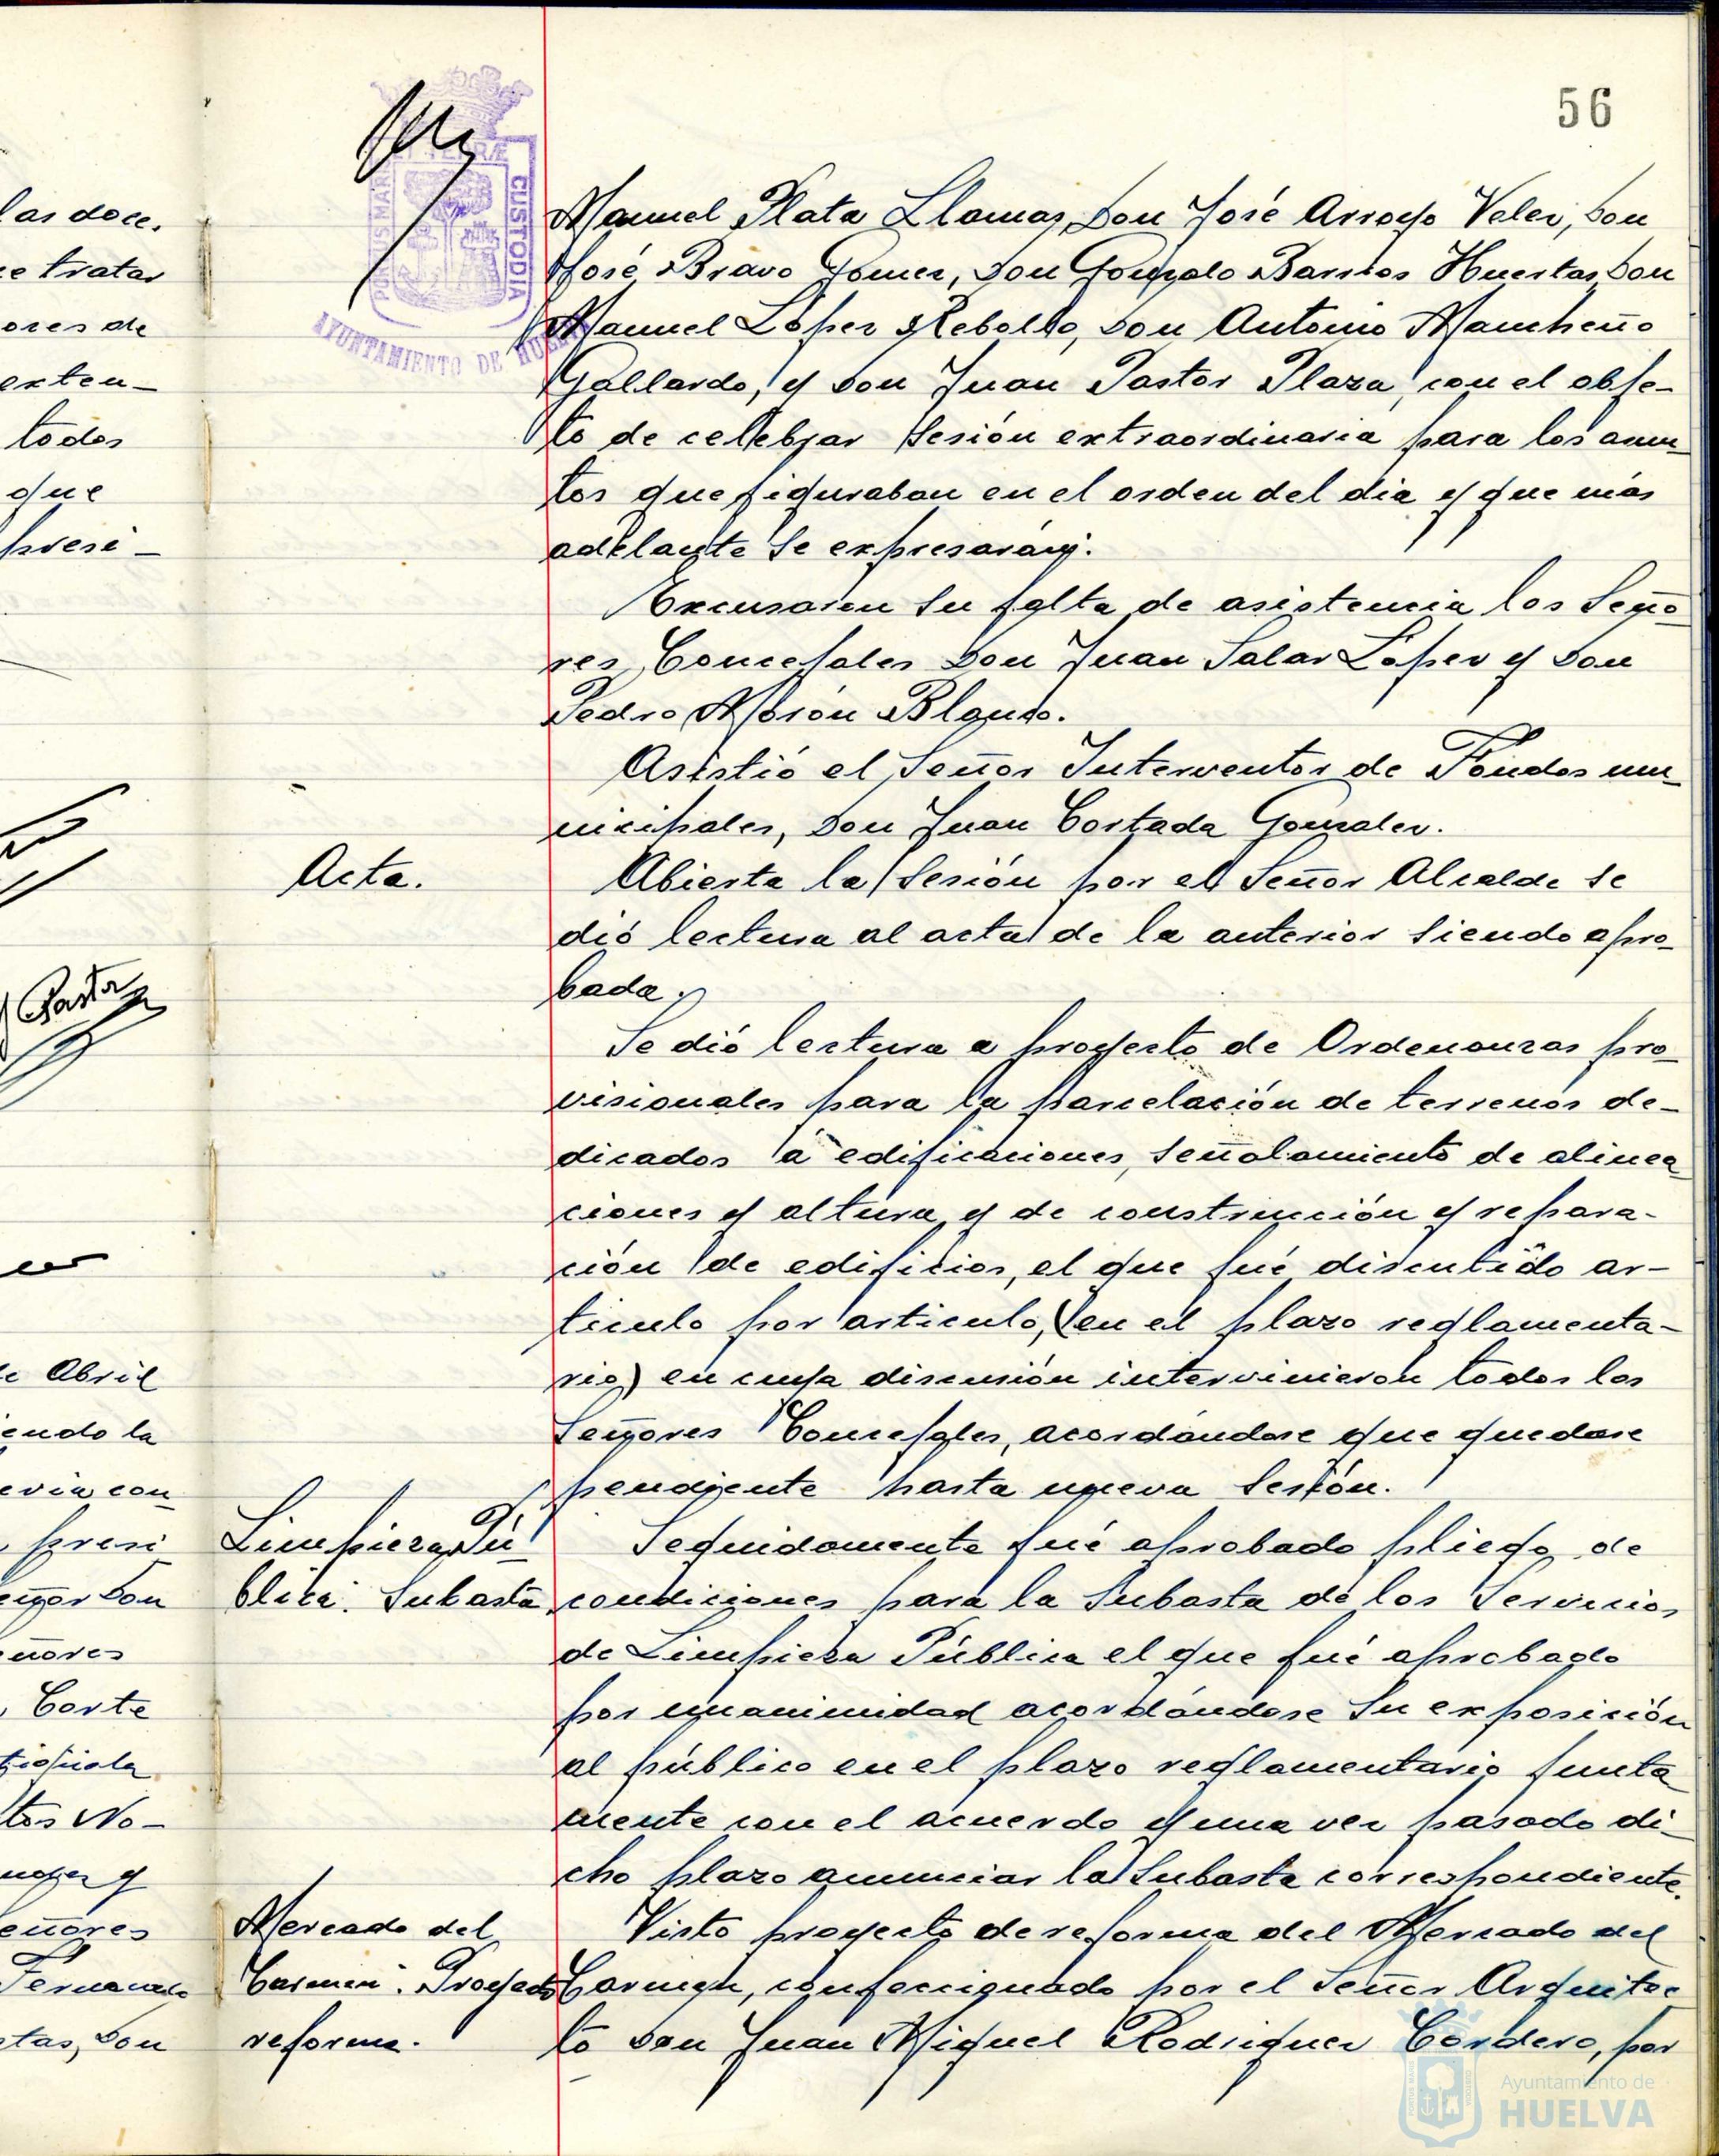 56
PORTUS MARIS ET TERRÆ CUSTODIA
AYUNTAMIENTO DE HUELVA
las doce.
e tratar
ores de
exten-
todos
que
presi-
Pastor
de Abril
endo la
evia con
presi
eñor Don
eñores
Corte
tos No-
y
eñores
Fernando
tas, Don
Manuel Plata Llamas, Don José Arroyo Velez, Don
José Bravo Gomez, Don Gonzalo Barrios Huertas, Don
Manuel López Rebollo, Don Antonio Mancheño
Gallardo, y Don Juan Pastor Plaza, con el obje-
to de cellebrar Sesión extraordinaria para los asun
tos que figuraban en el orden del dia y que más
adelante se expresarán.
Excusaron su falta de asistencia los Seño-
res Concejales Don Juan Salas López y Don
Pedro Morón Blanco.
Asistió el Señor Interventor de Fondos mu-
nicipales, Don Juan Cortada Gonzalez.
Acta.
Abierta la Sesión por el Señor Alcalde se
dió lectura al acta de la anterior siendo apro-
bada.
Se dió lectura a proyecto de Ordenanzas pro-
visionales para la parcelación de terrenos de-
dicados á edificaciones, señalamiento de alinea-
ciones y altura, y de construcción y repara-
ción de edificios, el que fué discutido ar-
ticulo por articulo, (en el plazo reglamenta-
rio) en cuya discusión intervinieron todos los
Señores Concejales, acordándose que quedase
pendiente hasta nueva Sesión.
Limpieza Pú-
blica. Subasta
Seguidamente fué aprobado pliego de
condiciones para la Subasta de los Servicios
de Limpieza Pública el que fué aprobado
por unanimidad acordándose su exposición
al público en el plazo reglamentario junta
mente con el acuerdo y una vez pasado di-
cho plazo anunciar la Subasta correspondiente.
Mercado del
Carmen. Proyecto
reforma.
Visto proyecto de reforma del Mercado del
Carmen, confeccionado por el Señor Arquitec
to Don Juan Miguel Rodriguez Cordero, por
Ayuntamiento de
HUELVA